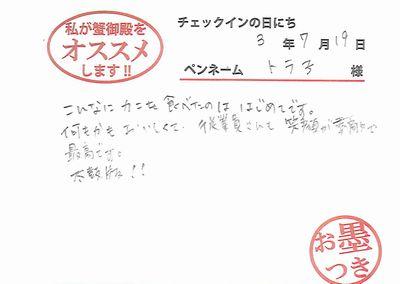 私が蟹御殿を
オススメ
します!!
チェックインの日にち
3 年 7 月 19 日
ペンネーム トラ子 様
こんなにカニを食べたのははじめてです。
何もかもおいしくて、従業員さんも笑顔が素敵で
最高です。
太鼓版!!
お墨
つき